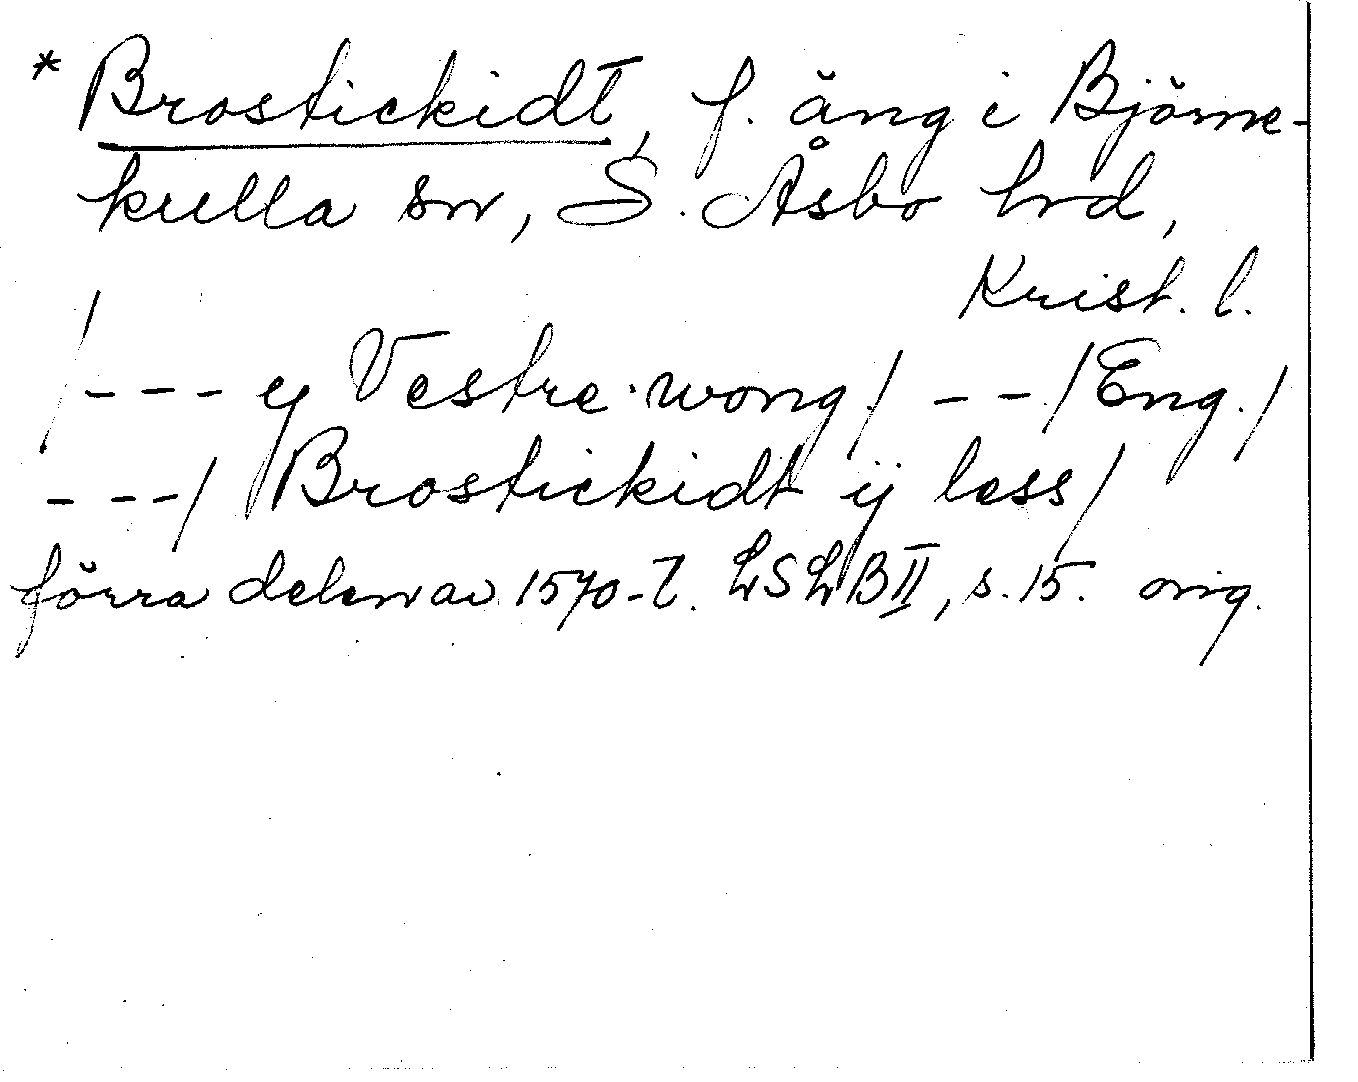 * Brostickidt, f. äng i Björne-
kulla sn, S. Åsbo hrd,
Krist. l.
/--- ej Vestre wong/ --/Eng./
---/ Brostickidt ij less/
förra delen av 1570-t. LSLB II, s. 15. orig.